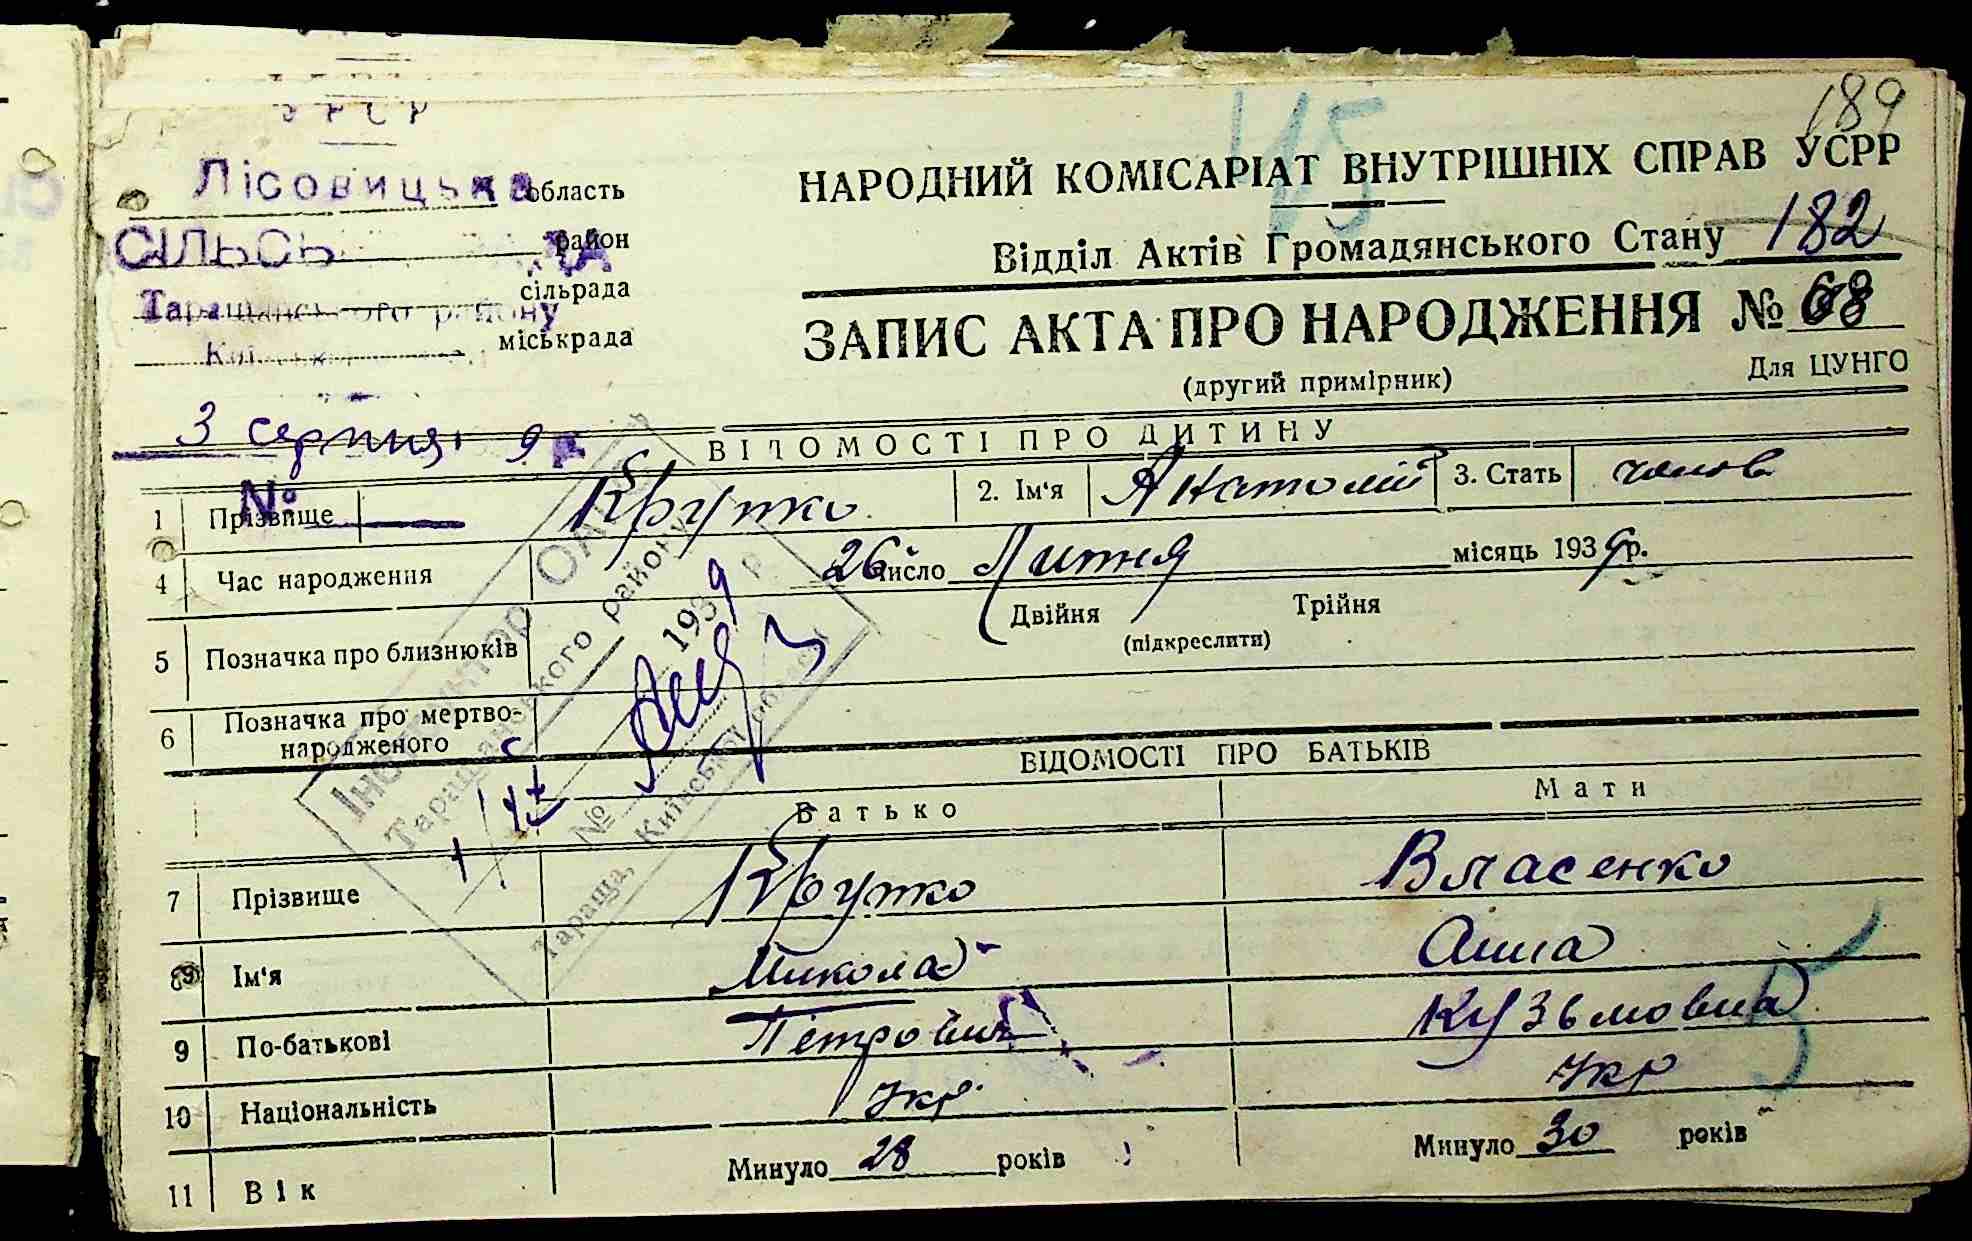 189
115
УРСР
Лісовицька область
НАРОДНИЙ КОМІСАРІАТ ВНУТРІШНІХ СПРАВ УСРР
СІЛЬСЬ КА район
Відділ Актів Громадянського Стану 182
Таращанського району сільрада
міськрада
ЗАПИС АКТА ПРО НАРОДЖЕННЯ № 68
(другий примірник) Для ЦУНГО
3 серпня 9 р
ВІДОМОСТІ ПРО ДИТИНУ
№
1 Прізвище Крупко 2. Ім'я Анатолій 3. Стать чолов
4 Час народження 26 число Липня місяць 1939 р.
5 Позначка про близнюків Двійня Трійня
(підкреслити)
6 Позначка про мертво-
народженого
Інспектор ОАГС
Таращанського району
№ 1939 р
Тараща, Київської області
ВІДОМОСТІ ПРО БАТЬКІВ
Батько Мати
7 Прізвище Крупко Власенко
8 Ім'я Микола Анна
9 По-батькові Петрович Кузьмовна
10 Національність Укр Укр
11 Вік Минуло 28 років Минуло 30 років